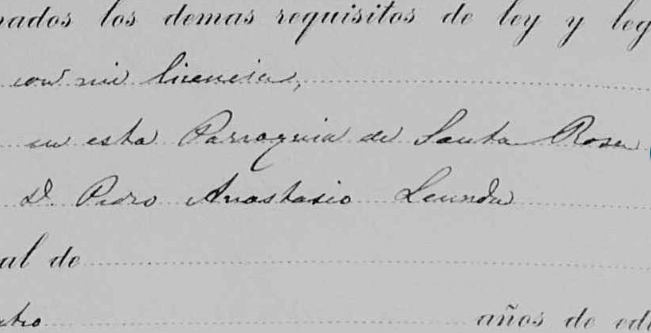 nados los demas requisitos de ley y leg
con mi licencia,
en esta Parroquia de Santa Rosa
D. Pedro Anastasio Leunda
al de
atro años de eda